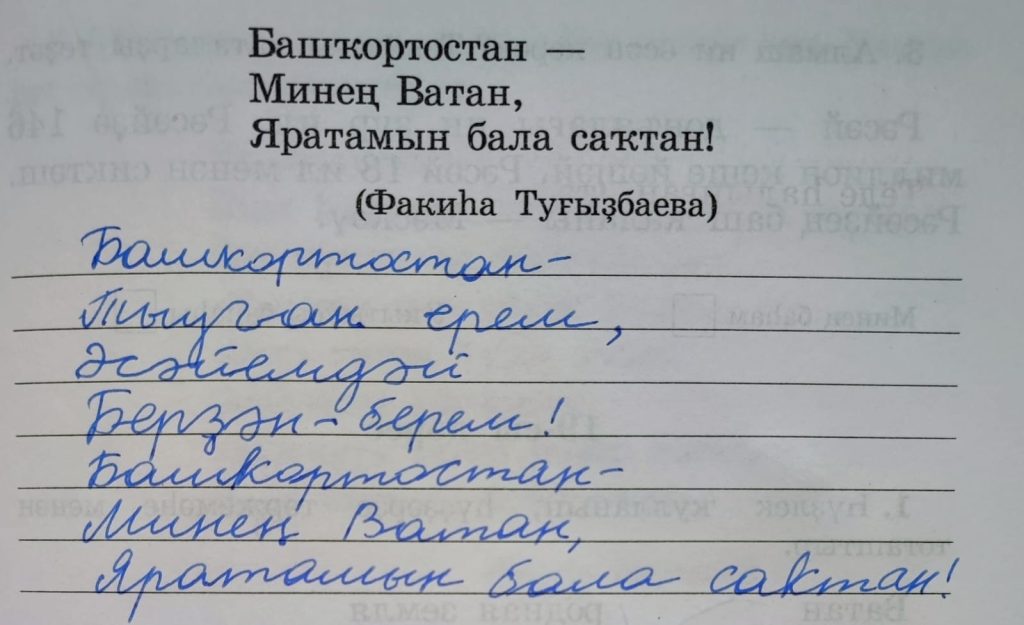 Башҡортостан —
Минең Ватан,
Яратамын бала саҡтан!
(Факиһа Туғыҙбаева)
Башкортостан-
Тыуған ерем,
Әсәйемдәй
Берҙән-берем!
Башкортостан-
Минең Ватан,
Яратамын бала сактан!